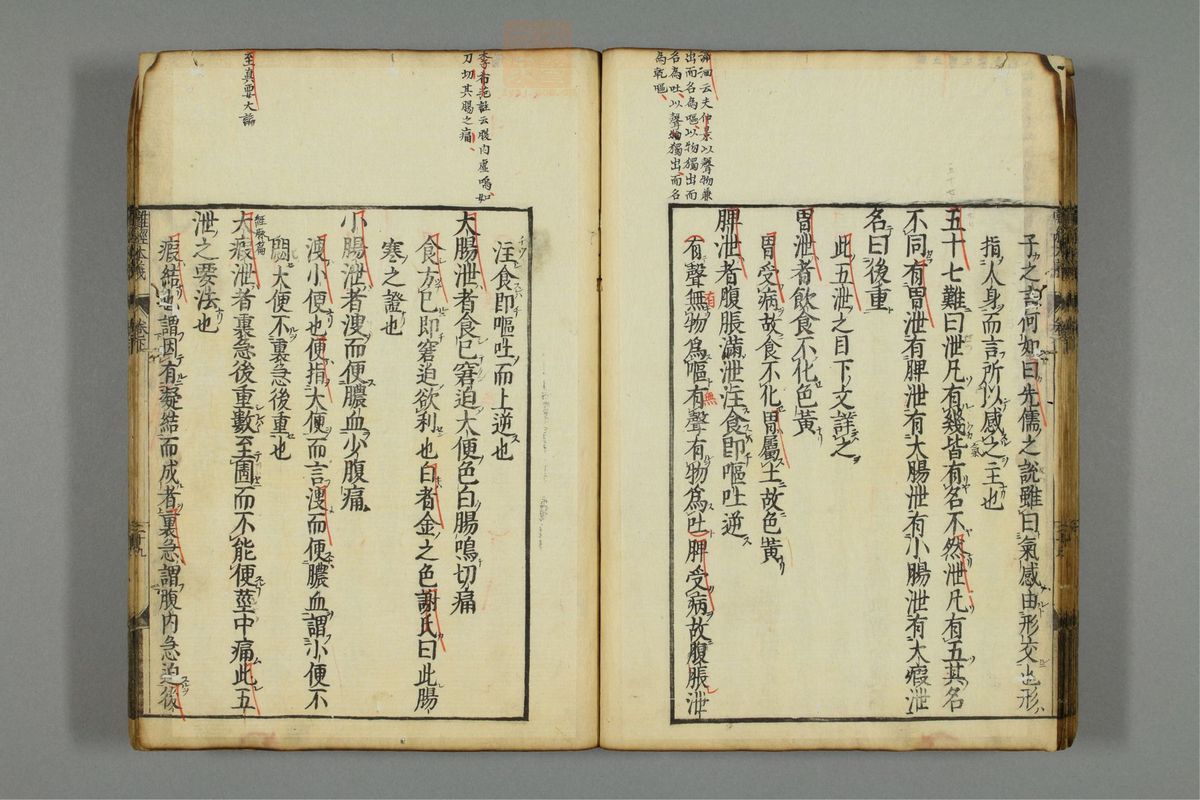 海汨云夫仲景以聲物兼
出而名為嘔、以物獨出而
名為吐、以聲獨出、而名
為乾嘔、
子之言何如曰先儒之說雖曰氣感由形交也形
指人身而言所以感之主也
五十七難曰泄凡有幾皆有名不然泄凡有五其名
不同有胃泄有脾泄有大腸泄有小腸泄有大瘕泄
名曰後重
此五泄之目下文詳之
胃泄者飲食不化色黃
胃受病故食不化胃屬土故色黃
脾泄者腹脹滿泄注食即嘔吐逆
有聲無物為嘔有聲有物為吐脾受病故腹脹泄
李希范註云腹内虛鳴、如
刀切其腸之痛、
至真要大論
注食即嘔吐而上逆也
大腸泄者食已窘迫大便色白腸鳴切痛
食方已即窘迫欲利也白者金之色謝氏曰此腸
寒之證也
小腸泄者溲而便膿血少腹痛
溲小便也便指大便而言溲而便膿血謂小便不
閟大便不裏急後重也
經脉篇
大瘕泄者裏急後重數至圊而不能便莖中痛此五
泄之要法也
瘕結也謂因有凝結而成者裏急謂腹内急迫後
難經本義
卷下